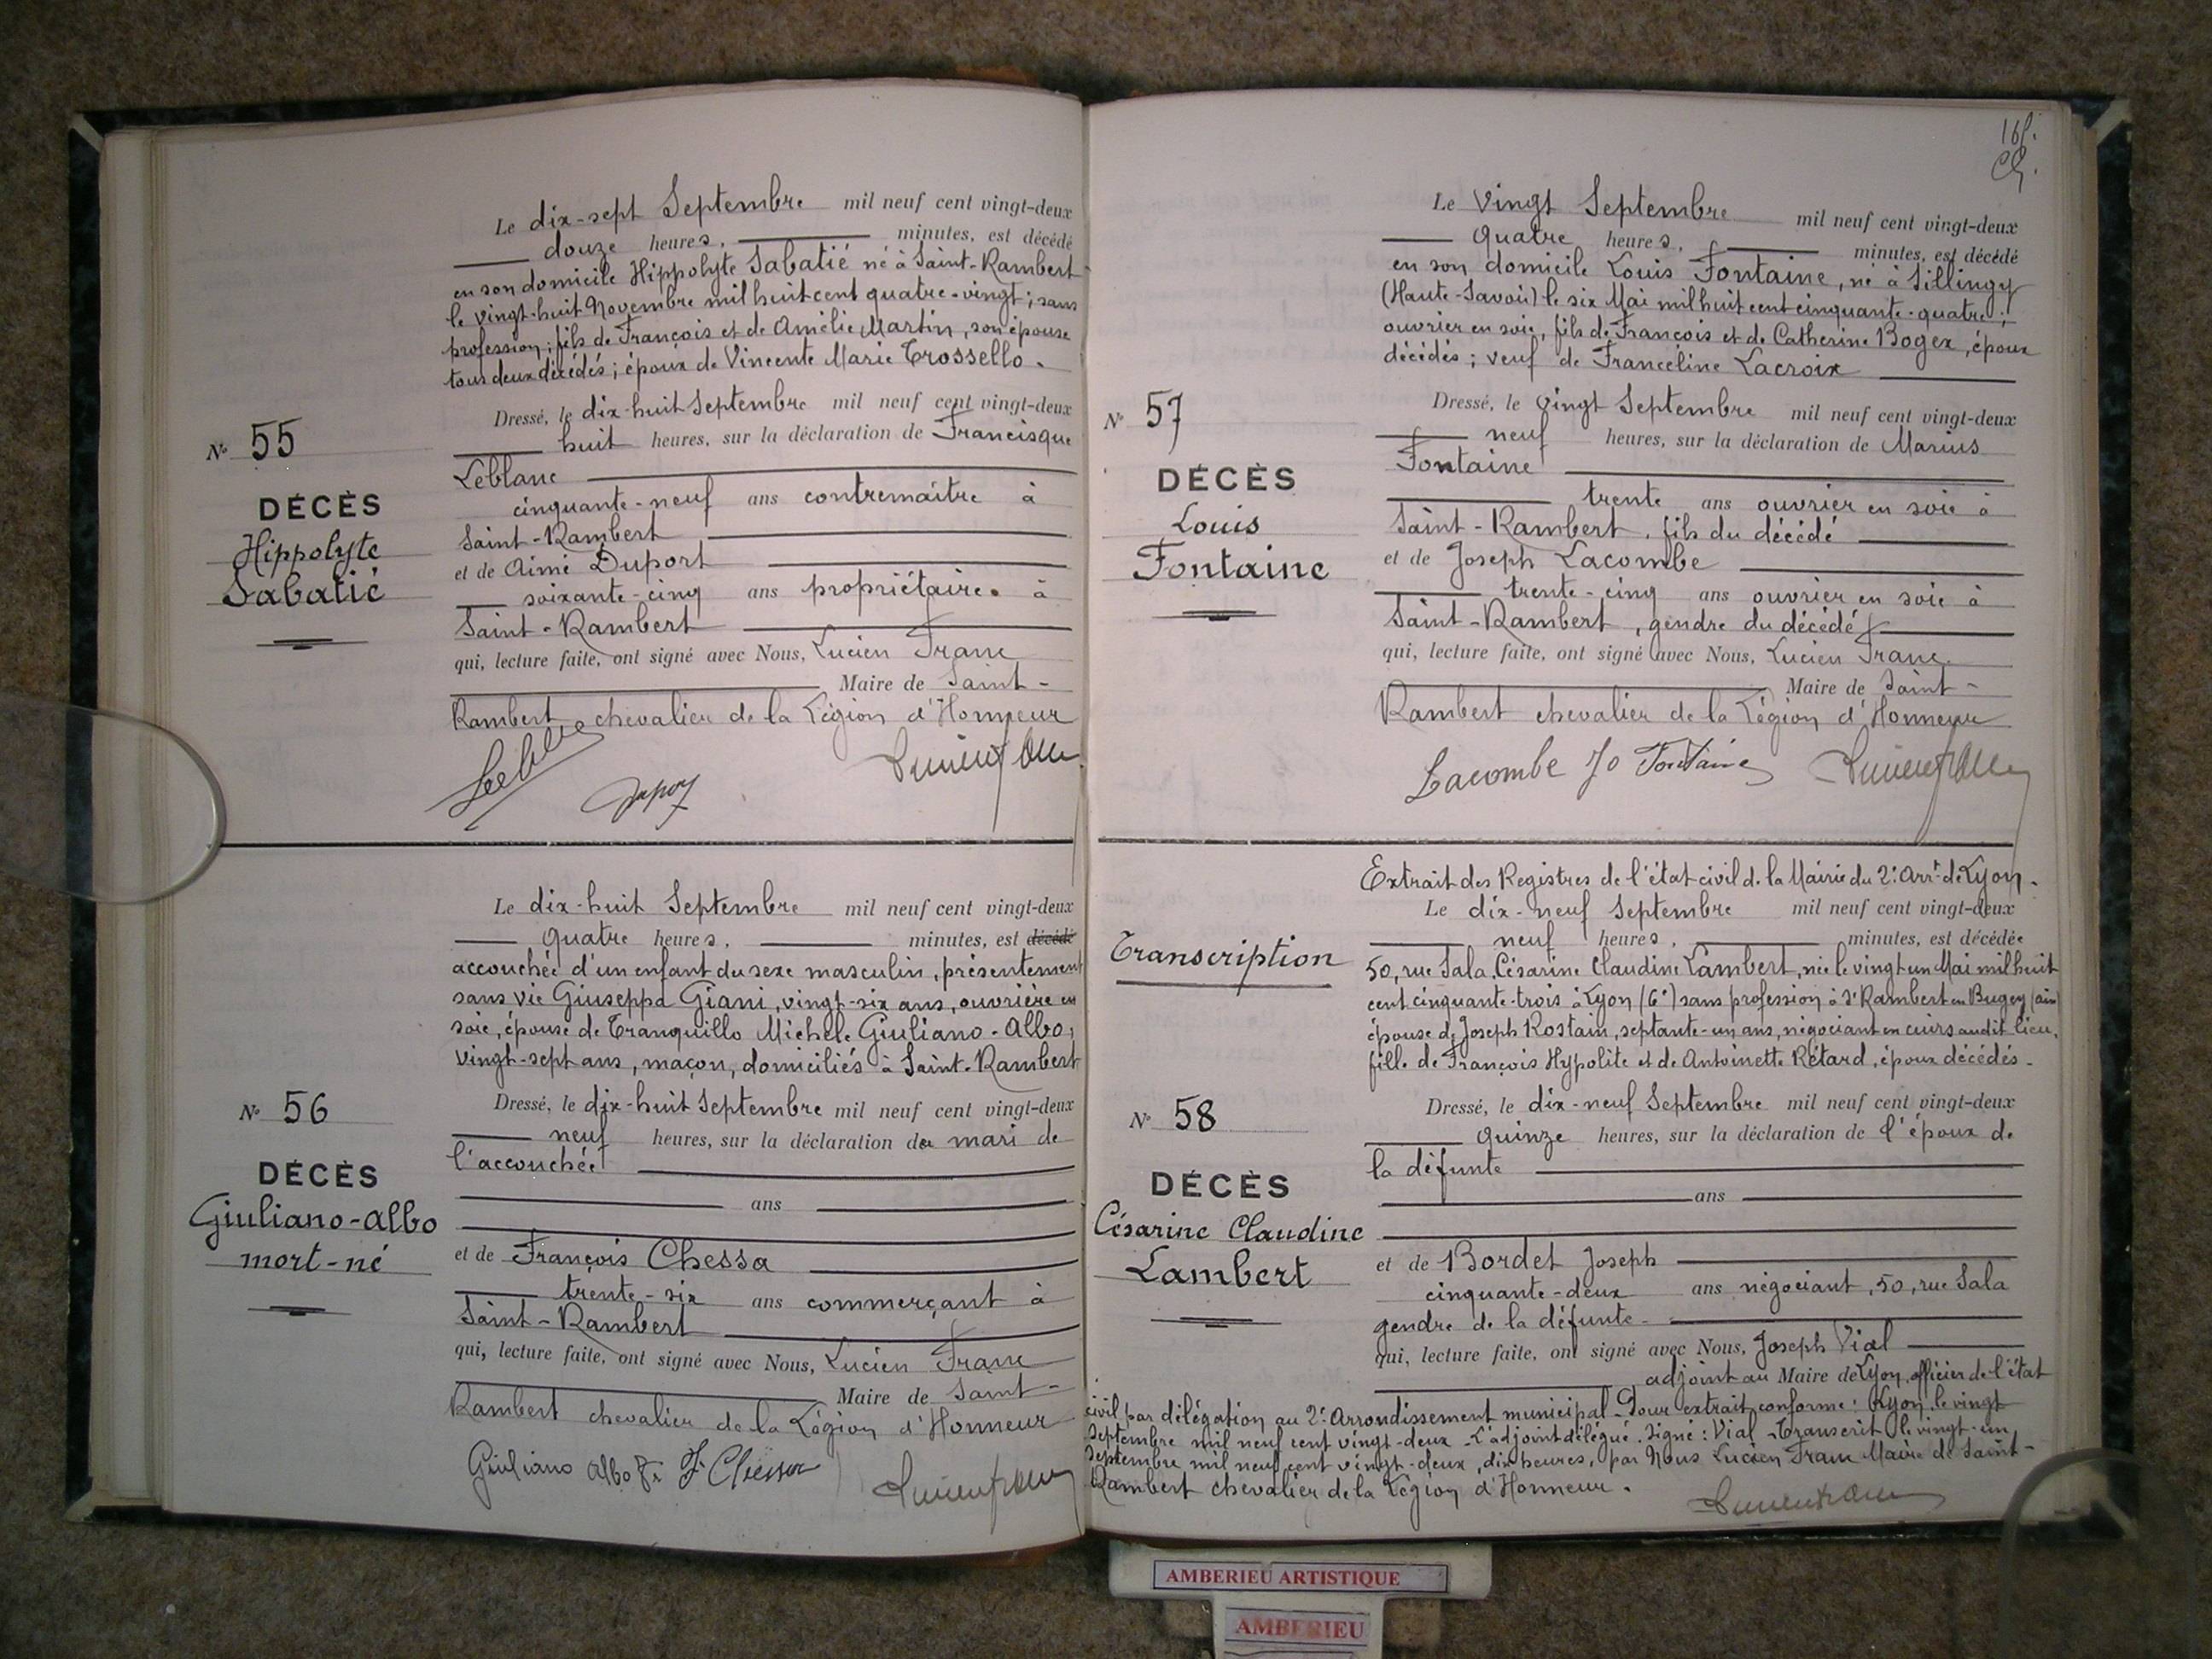 Le dix-sept Septembre mil neuf cent vingt-deux
douze heures, minutes, est décédé
en son domicile Hippolyte Sabatié né à Saint-Rambert
le vingt-huit Novembre mil huit cent quatre-vingt; sans
profession; fils de François et de Amélie Martin, son épouse
tous deux décédés; époux de Vincente Marie Trossello.
Dressé, le dix-huit Septembre mil neuf cent vingt-deux
huit heures, sur la déclaration de Francisque
Leblanc
cinquante-neuf ans contremaître à
Saint-Rambert
et de Aimé Duport
soixante-cinq ans propriétaire à
Saint-Rambert
qui, lecture faite, ont signé avec Nous, Lucien Franc
Maire de Saint-
Rambert chevalier de la Légion d'Honneur
N° 55
DÉCÈS
Hippolyte
Sabatié
Le dix-huit Septembre mil neuf cent vingt-deux
quatre heures, minutes, est décédé
accouchée d'un enfant du sexe masculin, présentement
sans vie Giuseppa Giani, vingt-six ans, ouvrière en
soie, épouse de Tranquillo Michele Giuliano-Albo,
vingt-sept ans, maçon, domiciliés à Saint-Rambert
Dressé, le dix-huit Septembre mil neuf cent vingt-deux
neuf heures, sur la déclaration du mari de
l'accouchée
ans
et de François Chessa
trente-six ans commerçant à
Saint-Rambert
qui, lecture faite, ont signé avec Nous, Lucien Franc
Maire de Saint-
Rambert chevalier de la Légion d'Honneur
Giuliano Albo F. Chessa
N° 56
DÉCÈS
Giuliano-Albo
mort-né
Le vingt Septembre mil neuf cent vingt-deux
quatre heures, minutes, est décédé
en son domicile Louis Fontaine, né à Sillingy
(Haute-Savoie) le six Mai mil huit cent cinquante-quatre;
ouvrier en soie, fils de François et de Catherine Bogex, époux
décédés; veuf de Franceline Lacroix
Dressé, le vingt Septembre mil neuf cent vingt-deux
neuf heures, sur la déclaration de Marius
Fontaine
trente ans ouvrier en soie à
Saint-Rambert, fils du décédé
et de Joseph Lacombe
trente-cinq ans ouvrier en soie à
Saint-Rambert, gendre du décédé
qui, lecture faite, ont signé avec Nous, Lucien Franc
Maire de Saint-
Rambert chevalier de la Légion d'Honneur
Lacombe Jo Fontaine
N° 57
DÉCÈS
Louis
Fontaine
Extrait des Registres de l'état civil de la Mairie du 2e Arrt de Lyon.
Le dix-neuf Septembre mil neuf cent vingt-deux
neuf heures, minutes, est décédée
50, rue Sala, Césarine Claudine Lambert, née le vingt un Mai mil huit
cent cinquante-trois à Lyon (6e) sans profession à St Rambert en Bugey (ain)
épouse de Joseph Rostain, septante-un ans, négociant en cuirs audit lieu,
fille de François Hypolite et de Antoinette Rétard, époux décédés.
Dressé, le dix-neuf Septembre mil neuf cent vingt-deux
quinze heures, sur la déclaration de l'époux de
la défunte
ans
et de Bordet Joseph
cinquante-deux ans négociant, 50, rue Sala
gendre de la défunte
qui, lecture faite, ont signé avec Nous, Joseph Vial
adjoint au Maire de Lyon, officier de l'état
civil par délégation au 2e Arrondissement municipal. Pour extrait conforme: Lyon, le vingt
Septembre mil neuf cent vingt-deux. L'adjoint délégué. Signé: Vial. Transcrit le vingt-un
Septembre mil neuf cent vingt-deux, dix heures, par Nous Lucien Franc Maire de Saint-
Rambert chevalier de la Légion d'Honneur.
Transcription
N° 58
DÉCÈS
Césarine Claudine
Lambert
AMBERIEU ARTISTIQUE
AMBERIEU